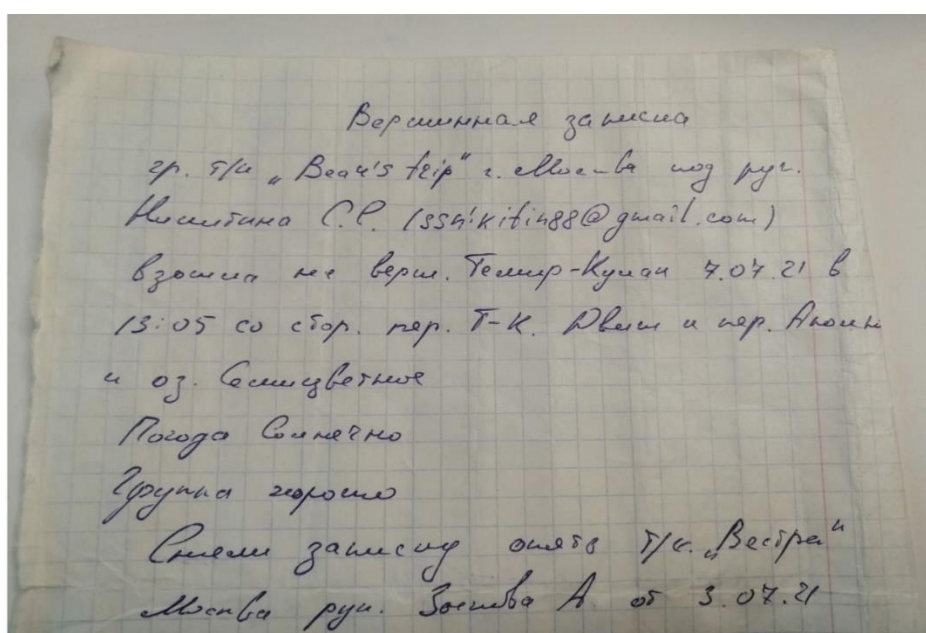 Вершинная записка
гр. т/к „Bear's trip" г. Москва под рук.
Никитина С.С. (ssnikitin88@gmail.com)
взошла на верш. Темир-Кулак 7.07.21 в
13:05 со стор. пер. Т-К. Движ к пер.
и оз. Семицветное
Погода Солнечно
Группа хорошо
Сняли записку опять т/к. „Вестра"
Москва рук. А. от 3.07.21